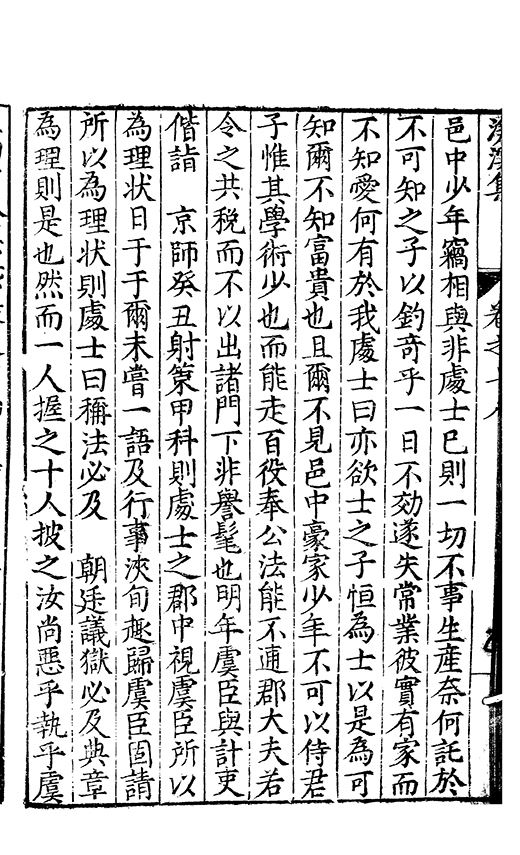 邑中少年竊相與非處士已則一切不事生產奈何託於
不可知之子以釣奇乎一日不効遂失常業彼實有家而
不知愛何有於我處士曰亦欲士之子恒為士以是為可
知爾不知富貴也且爾不見邑中豪家少年不可以侍君
子惟其學術少也而能走百役奉公法能不逋郡大夫若
令之共稅而不以出諸門下非譽髦也明年虞臣與計吏
偕詣　京師癸丑射策甲科則處士之郡中視虞臣所以
為理狀日于于爾未嘗一語及行事浹旬趣歸虞臣固請
所以為理狀則處士曰稱法必及　朝廷議獄必及典章
為理則是也然而一人握之十人披之汝尚惡乎執乎虞